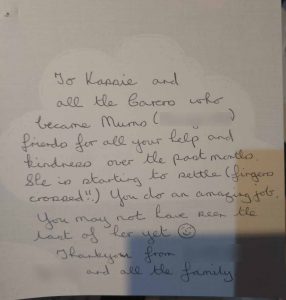 To Kassie and
all the Carers who
became Mums (          )
friends for all your help and
kindness over the past months.
She is starting to settle (fingers
crossed!!) You do an amazing job.
You may not have seen the
last of her yet ☺
Thankyou from
and all the family